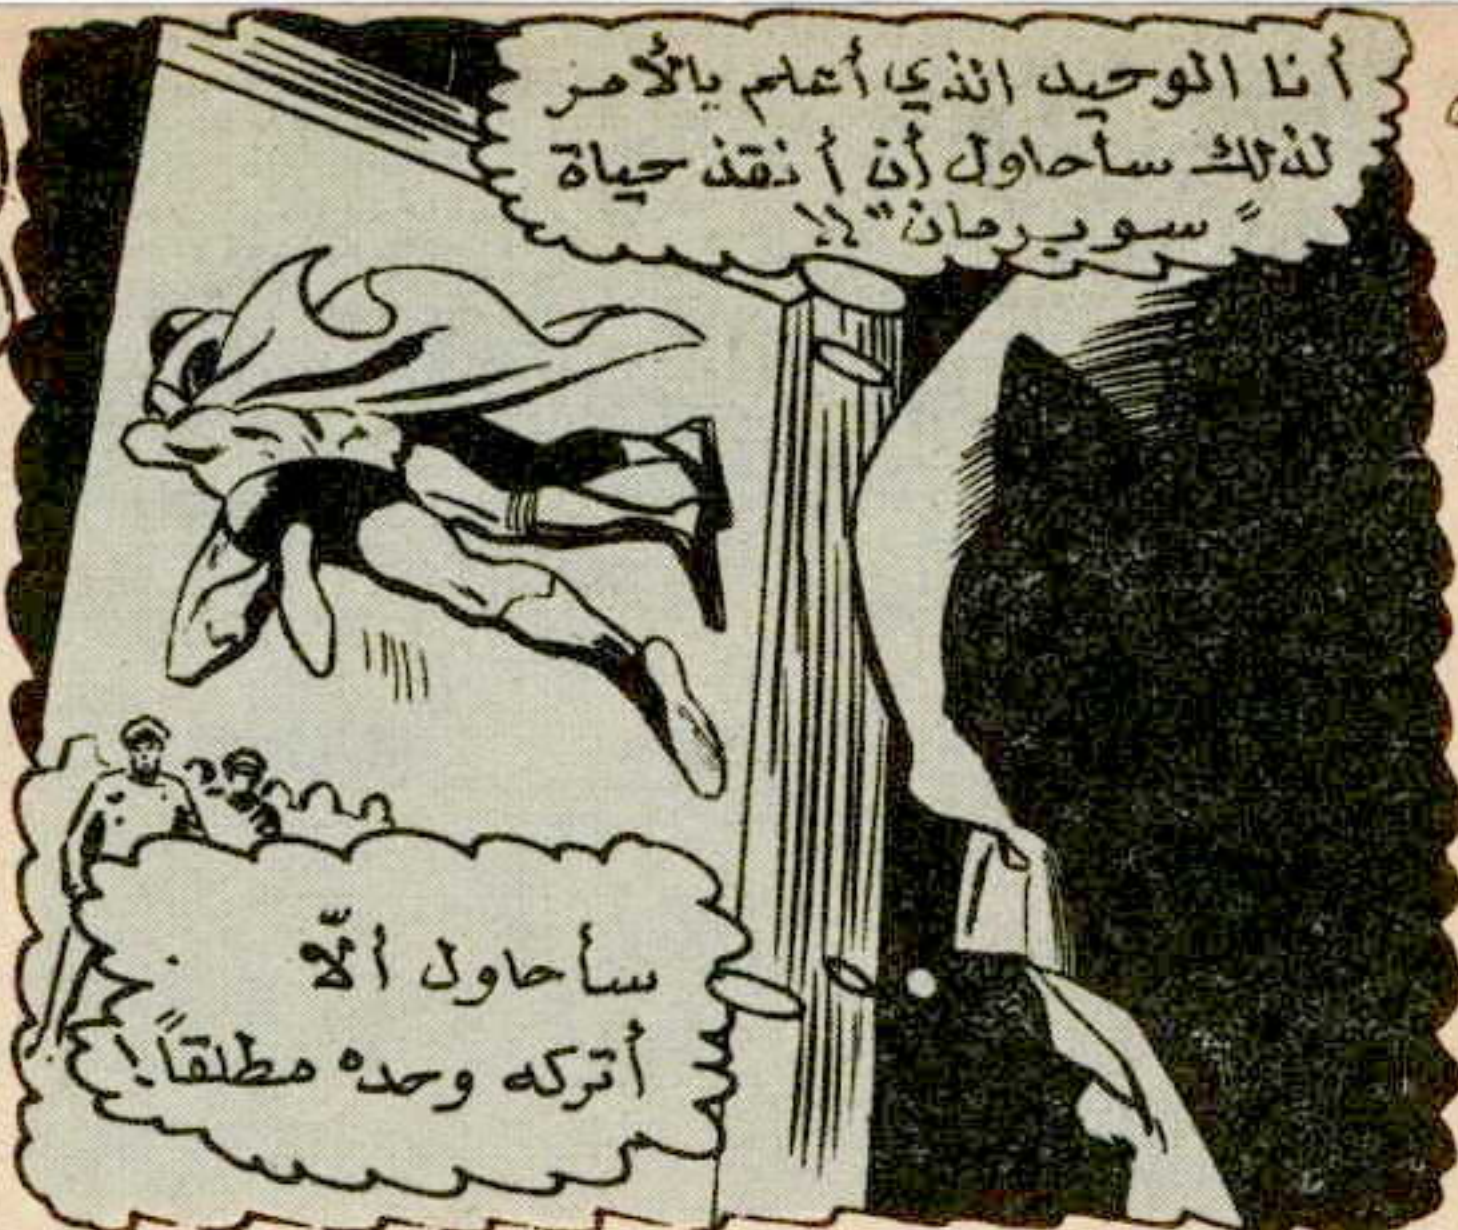 أنا الوحيد الذي أعلم بالأمر
لذلك سأحاول أن أنقذ حياة
"سوبرمان"!!
سأحاول ألّا
أتركه وحده مطلقاً!